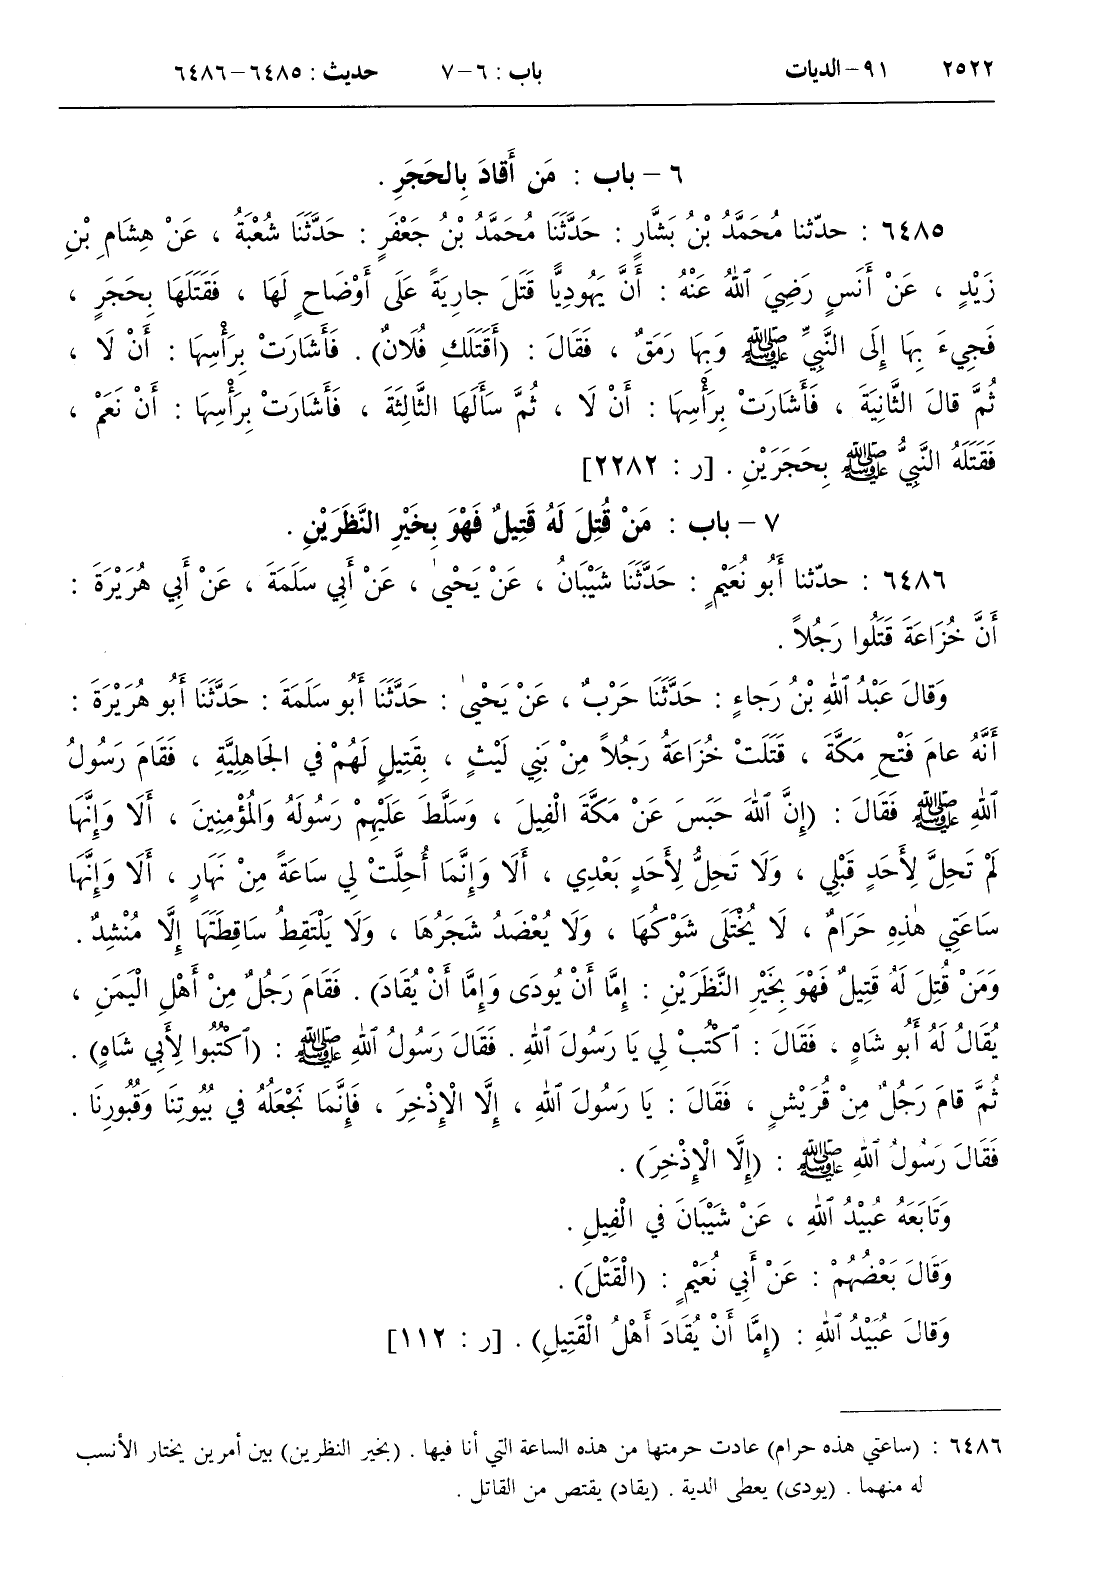 ٢٥٢٢ ٩١- الديات باب : ٦-٧ حديث : ٦٤٨٥-٦٤٨٦
٦ - باب : مَن أَقادَ بِالحَجَرِ .
٦٤٨٥ : حدّثنا مُحَمَّدُ بْنُ بَشَّارٍ : حَدَّثَنَا مُحَمَّدُ بْنُ جَعْفَرٍ : حَدَّثَنَا شُعْبَةُ ، عَنْ هِشَامِ بْنِ
زَيْدٍ ، عَنْ أَنَسٍ رَضِيَ ٱللهُ عَنْهُ : أَنَّ يَهُودِيًّا قَتَلَ جارِيَةً عَلَى أَوْضَاحٍ لَهَا ، فَقَتَلَهَا بِحَجَرٍ ،
فَجِيءَ بِهَا إِلَى النَّبِيِّ ﷺ وَبِهَا رَمَقٌ ، فَقَالَ : (أَقَتَلَكِ فُلَانٌ) . فَأَشَارَتْ بِرَأْسِهَا : أَنْ لَا ،
ثُمَّ قالَ الثَّانِيَةَ ، فَأَشَارَتْ بِرَأْسِهَا : أَنْ لَا ، ثُمَّ سَأَلَهَا الثَّالِثَةَ ، فَأَشَارَتْ بِرَأْسِهَا : أَنْ نَعَمْ ،
فَقَتَلَهُ النَّبِيُّ ﷺ بِحَجَرَيْنِ . [ر : ٢٢٨٢]
٧ - باب : مَنْ قُتِلَ لَهُ قَتِيلٌ فَهْوَ بِخَيْرِ النَّظَرَيْنِ .
٦٤٨٦ : حدّثنا أَبُو نُعَيْمٍ : حَدَّثَنَا شَيْبَانُ ، عَنْ يَحْيىٰ ، عَنْ أَبِي سَلَمَةَ ، عَنْ أَبِي هُرَيْرَةَ :
أَنَّ خُزَاعَةَ قَتَلُوا رَجُلاً .
وَقالَ عَبْدُ ٱللهِ بْنُ رَجاءٍ : حَدَّثَنَا حَرْبٌ ، عَنْ يَحْيىٰ : حَدَّثَنَا أَبُو سَلَمَةَ : حَدَّثَنَا أَبُو هُرَيْرَةَ :
أَنَّهُ عامَ فَتْحِ مَكَّةَ ، قَتَلَتْ خُزَاعَةُ رَجُلاً مِنْ بَنِي لَيْثٍ ، بِقَتِيلٍ لَهُمْ في الجَاهِلِيَّةِ ، فَقَامَ رَسُولُ
ٱللهِ ﷺ فَقَالَ : (إِنَّ ٱللهَ حَبَسَ عَنْ مَكَّةَ الْفِيلَ ، وَسَلَّطَ عَلَيْهِمْ رَسُولَهُ وَالمُؤْمِنِينَ ، أَلَا وَإِنَّهَا
لَمْ تَحِلَّ لِأَحَدٍ قَبْلِي ، وَلَا تَحِلُّ لِأَحَدٍ بَعْدِي ، أَلَا وَإِنَّمَا أُحِلَّتْ لِي ساعَةً مِنْ نَهَارٍ ، أَلَا وَإِنَّهَا
سَاعَتِي هٰذِهِ حَرَامٌ ، لَا يُخْتَلَى شَوْكُهَا ، وَلَا يُعْضَدُ شَجَرُهَا ، وَلَا يَلْتَقِطُ سَاقِطَتَهَا إِلَّا مُنْشِدٌ .
وَمَنْ قُتِلَ لَهُ قَتِيلٌ فَهْوَ بِخَيْرِ النَّظَرَيْنِ : إِمَّا أَنْ يُودَى وَإِمَّا أَنْ يُقَادَ) . فَقَامَ رَجُلٌ مِنْ أَهْلِ الْيَمَنِ ،
يُقَالُ لَهُ أَبُو شَاهٍ ، فَقَالَ : ٱكْتُبْ لِي يَا رَسُولَ ٱللهِ . فَقَالَ رَسُولُ ٱللهِ ﷺ : (ٱكْتُبُوا لِأَبِي شَاهٍ) .
ثُمَّ قامَ رَجُلٌ مِنْ قُرَيْشٍ ، فَقَالَ : يَا رَسُولَ ٱللهِ ، إِلَّا الْإِذْخِرَ ، فَإِنَّمَا نَجْعَلُهُ في بُيُوتِنَا وَقُبُورِنَا .
فَقَالَ رَسُولُ ٱللهِ ﷺ : (إِلَّا الْإِذْخِرَ) .
وَتَابَعَهُ عُبَيْدُ ٱللهِ ، عَنْ شَيْبَانَ في الْفِيلِ .
وَقَالَ بَعْضُهُمْ : عَنْ أَبِي نُعَيْمٍ : (الْقَتْلَ) .
وَقالَ عُبَيْدُ ٱللهِ : (إِمَّا أَنْ يُقَادَ أَهْلُ الْقَتِيلِ) . [ر : ١١٢]
٦٤٨٦ : (ساعتي هذه حرام) عادت حرمتها من هذه الساعة التي أنا فيها . (بخير النظرين) بين أمرين يختار الأنسب
له منهما . (يودى) يعطى الدية . (يقاد) يقتص من القاتل .